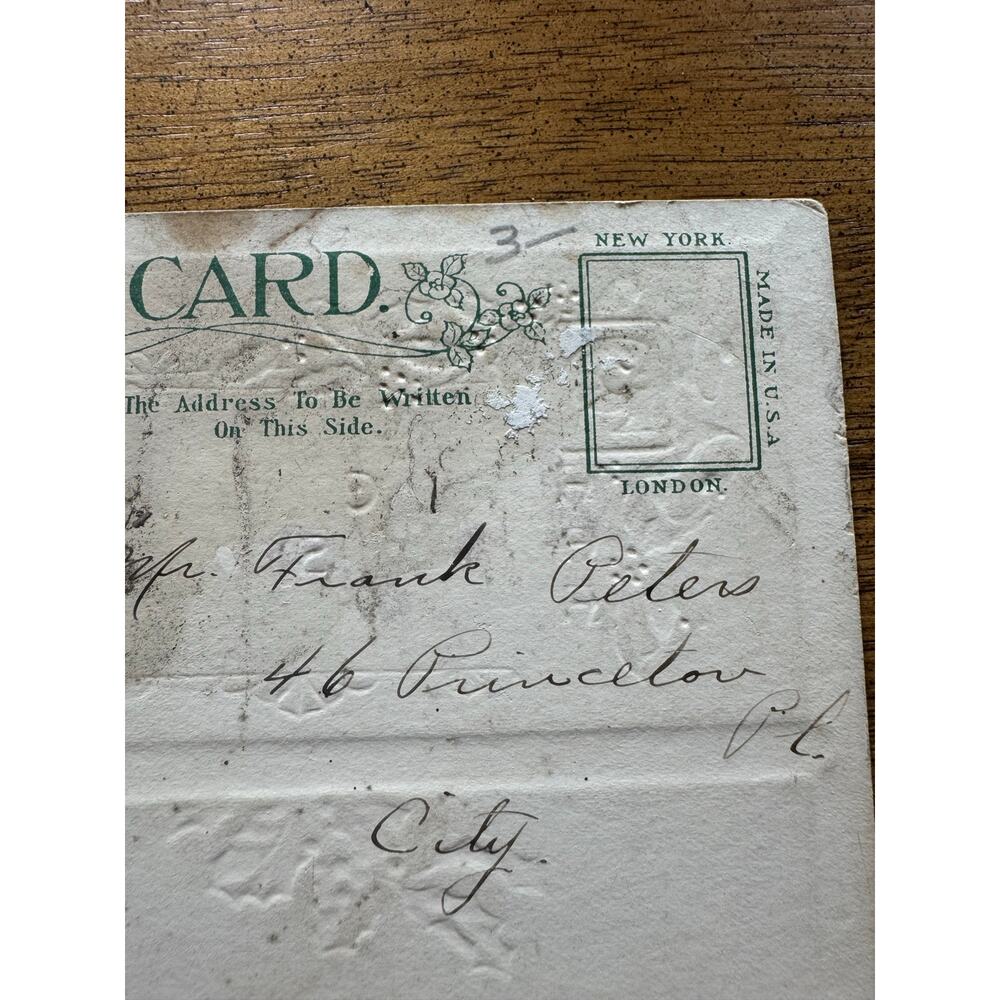 3—
NEW YORK.
CARD.
MADE IN U.S.A
The Address To Be Written
On This Side.
LONDON.
Mr. Frank Peters
46 Princeton
Pl.
City.